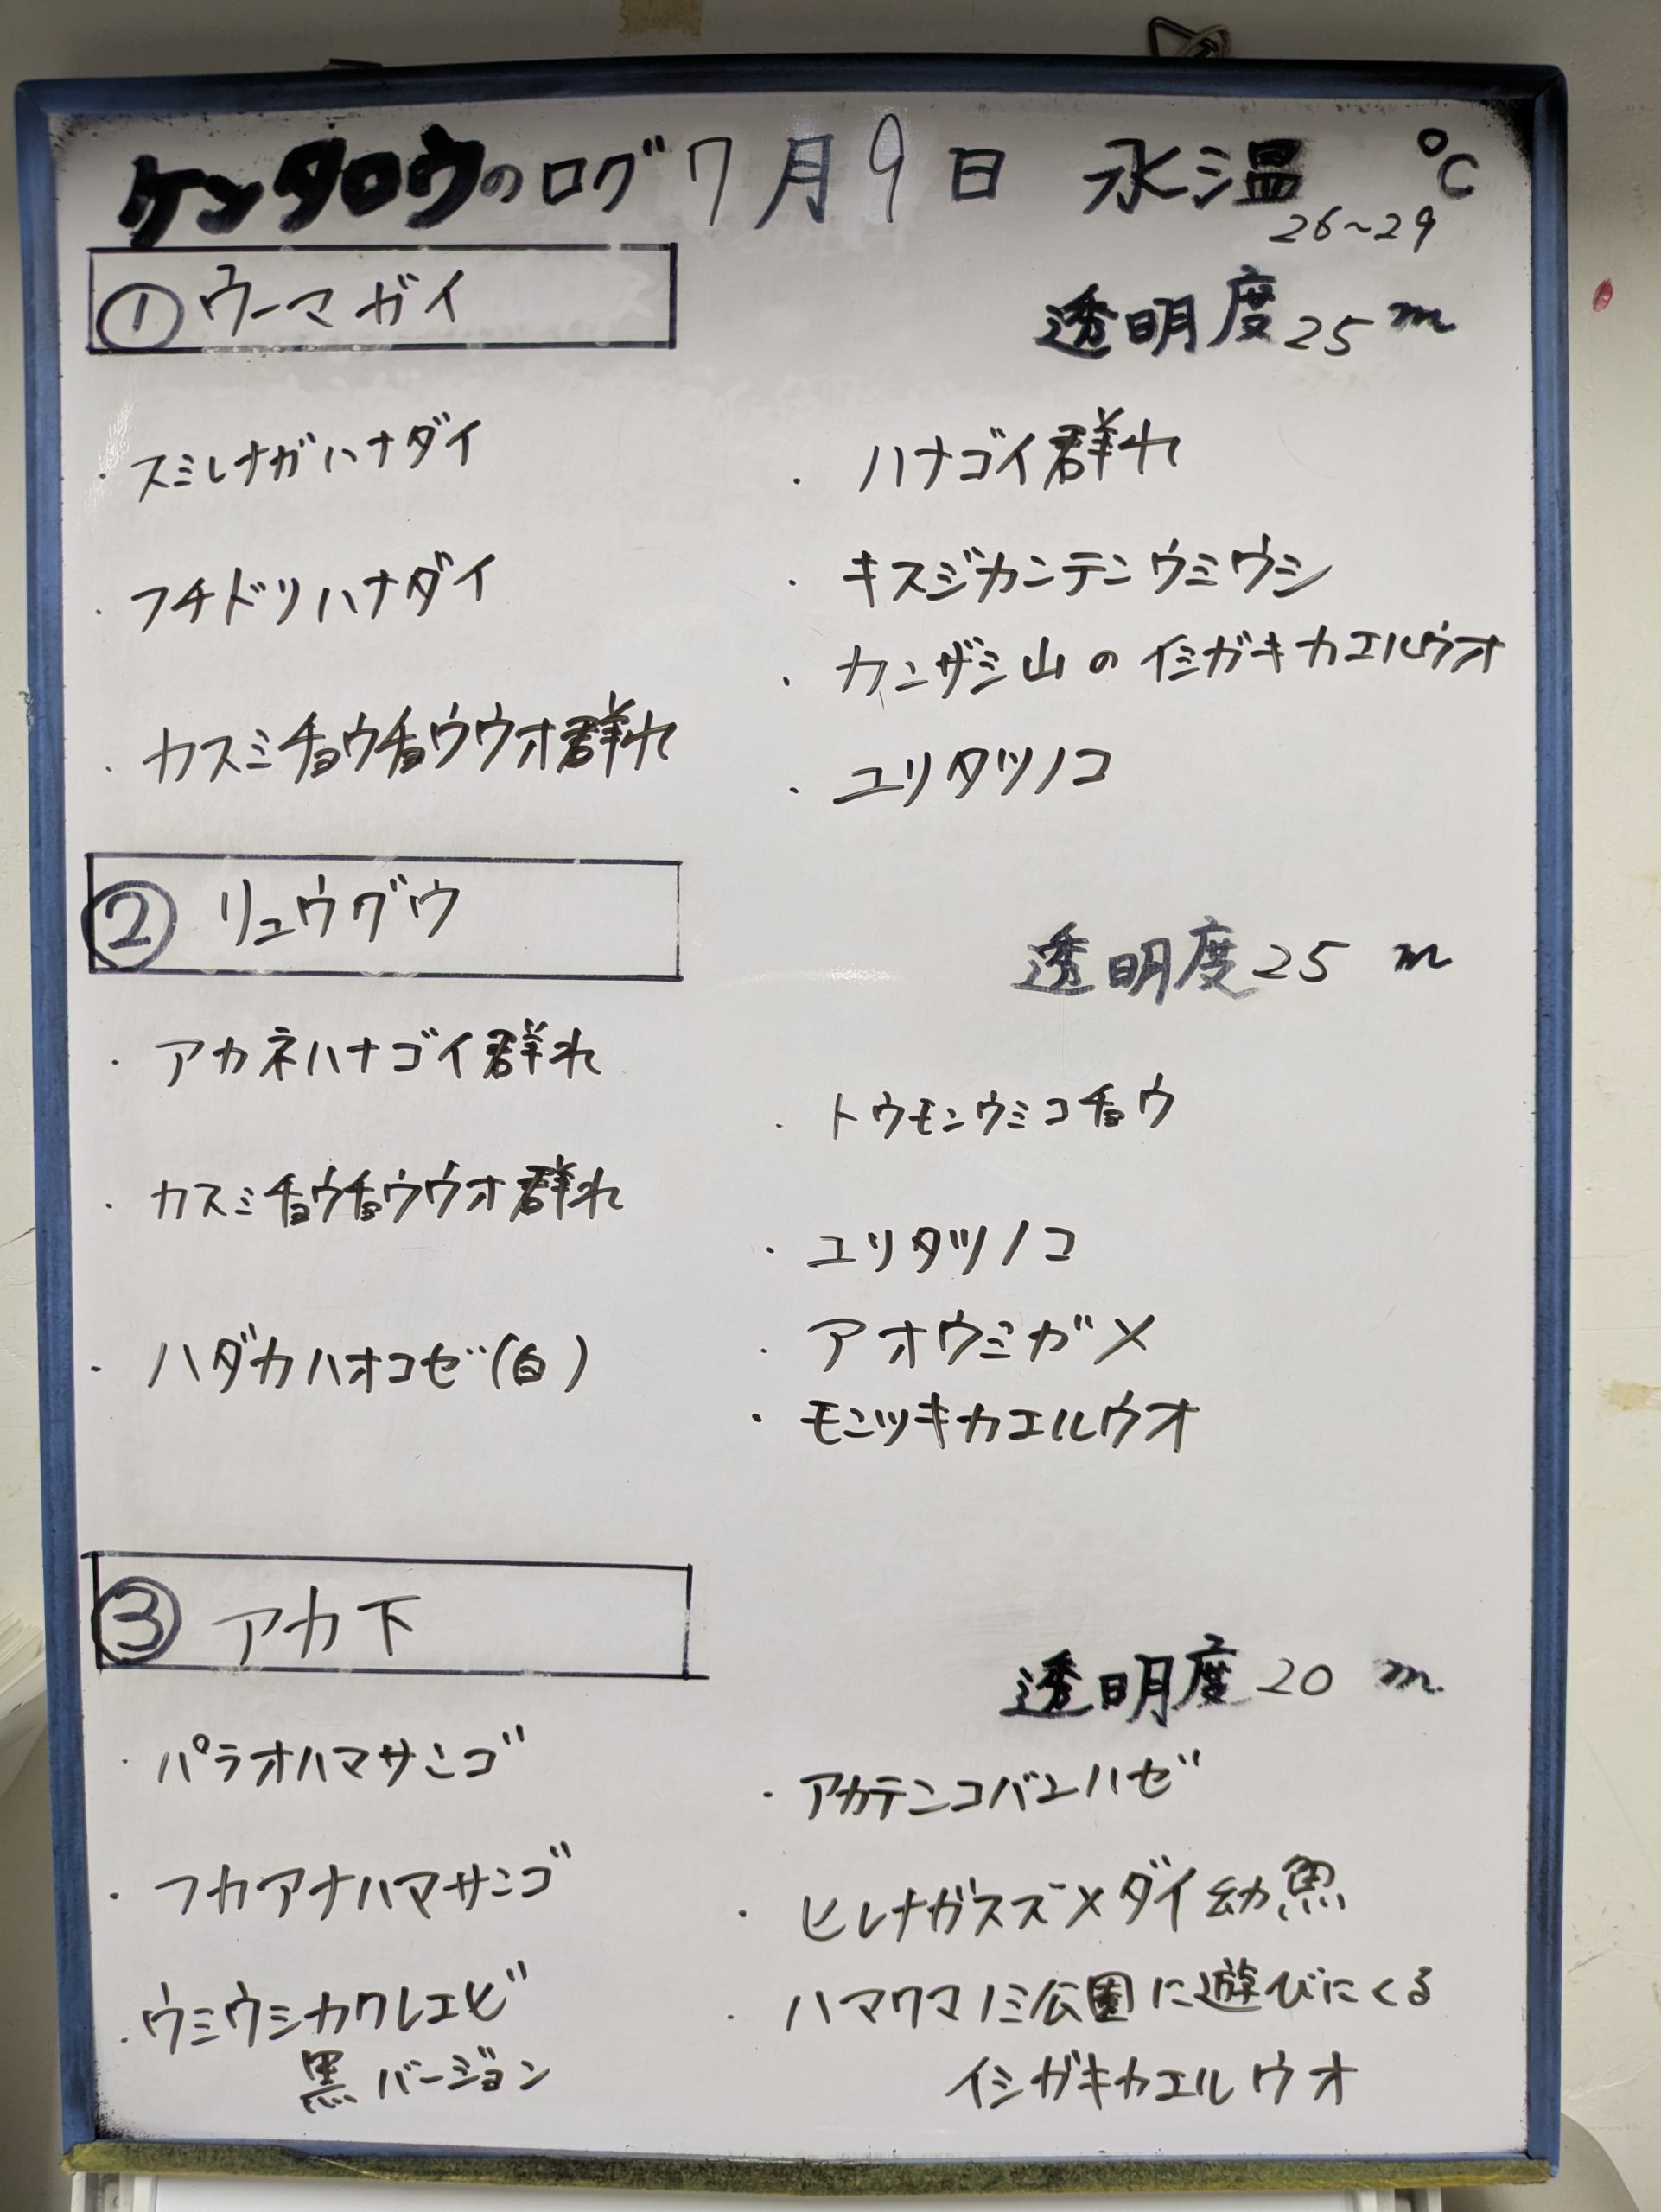 ケンタロウのログ 7月9日 水温 26~29 ℃
① ウーマガイ
透明度 25 m
・スミレナガハナダイ
・フチドリハナダイ
・カスミチョウチョウウオ群れ
・ハナゴイ群れ
・キスジカンテンウミウシ
・カンザシ山のイシガキカエルウオ
・ユリタツノコ
② リュウグウ
透明度 25 m
・アカネハナゴイ群れ
・カスミチョウチョウウオ群れ
・ハダカハオコゼ(白)
・トウモンウミコチョウ
・ユリタツノコ
・アオウミガメ
・モンツキカエルウオ
③ アカ下
透明度 20 m
・パラオハマサンゴ
・フカアナハマサンゴ
・ウミウシカクレエビ
黒バージョン
・アカテンコバンハゼ
・ヒレナガスズメダイ幼魚
・ハマクマノミ公園に遊びにくる
イシガキカエルウオ